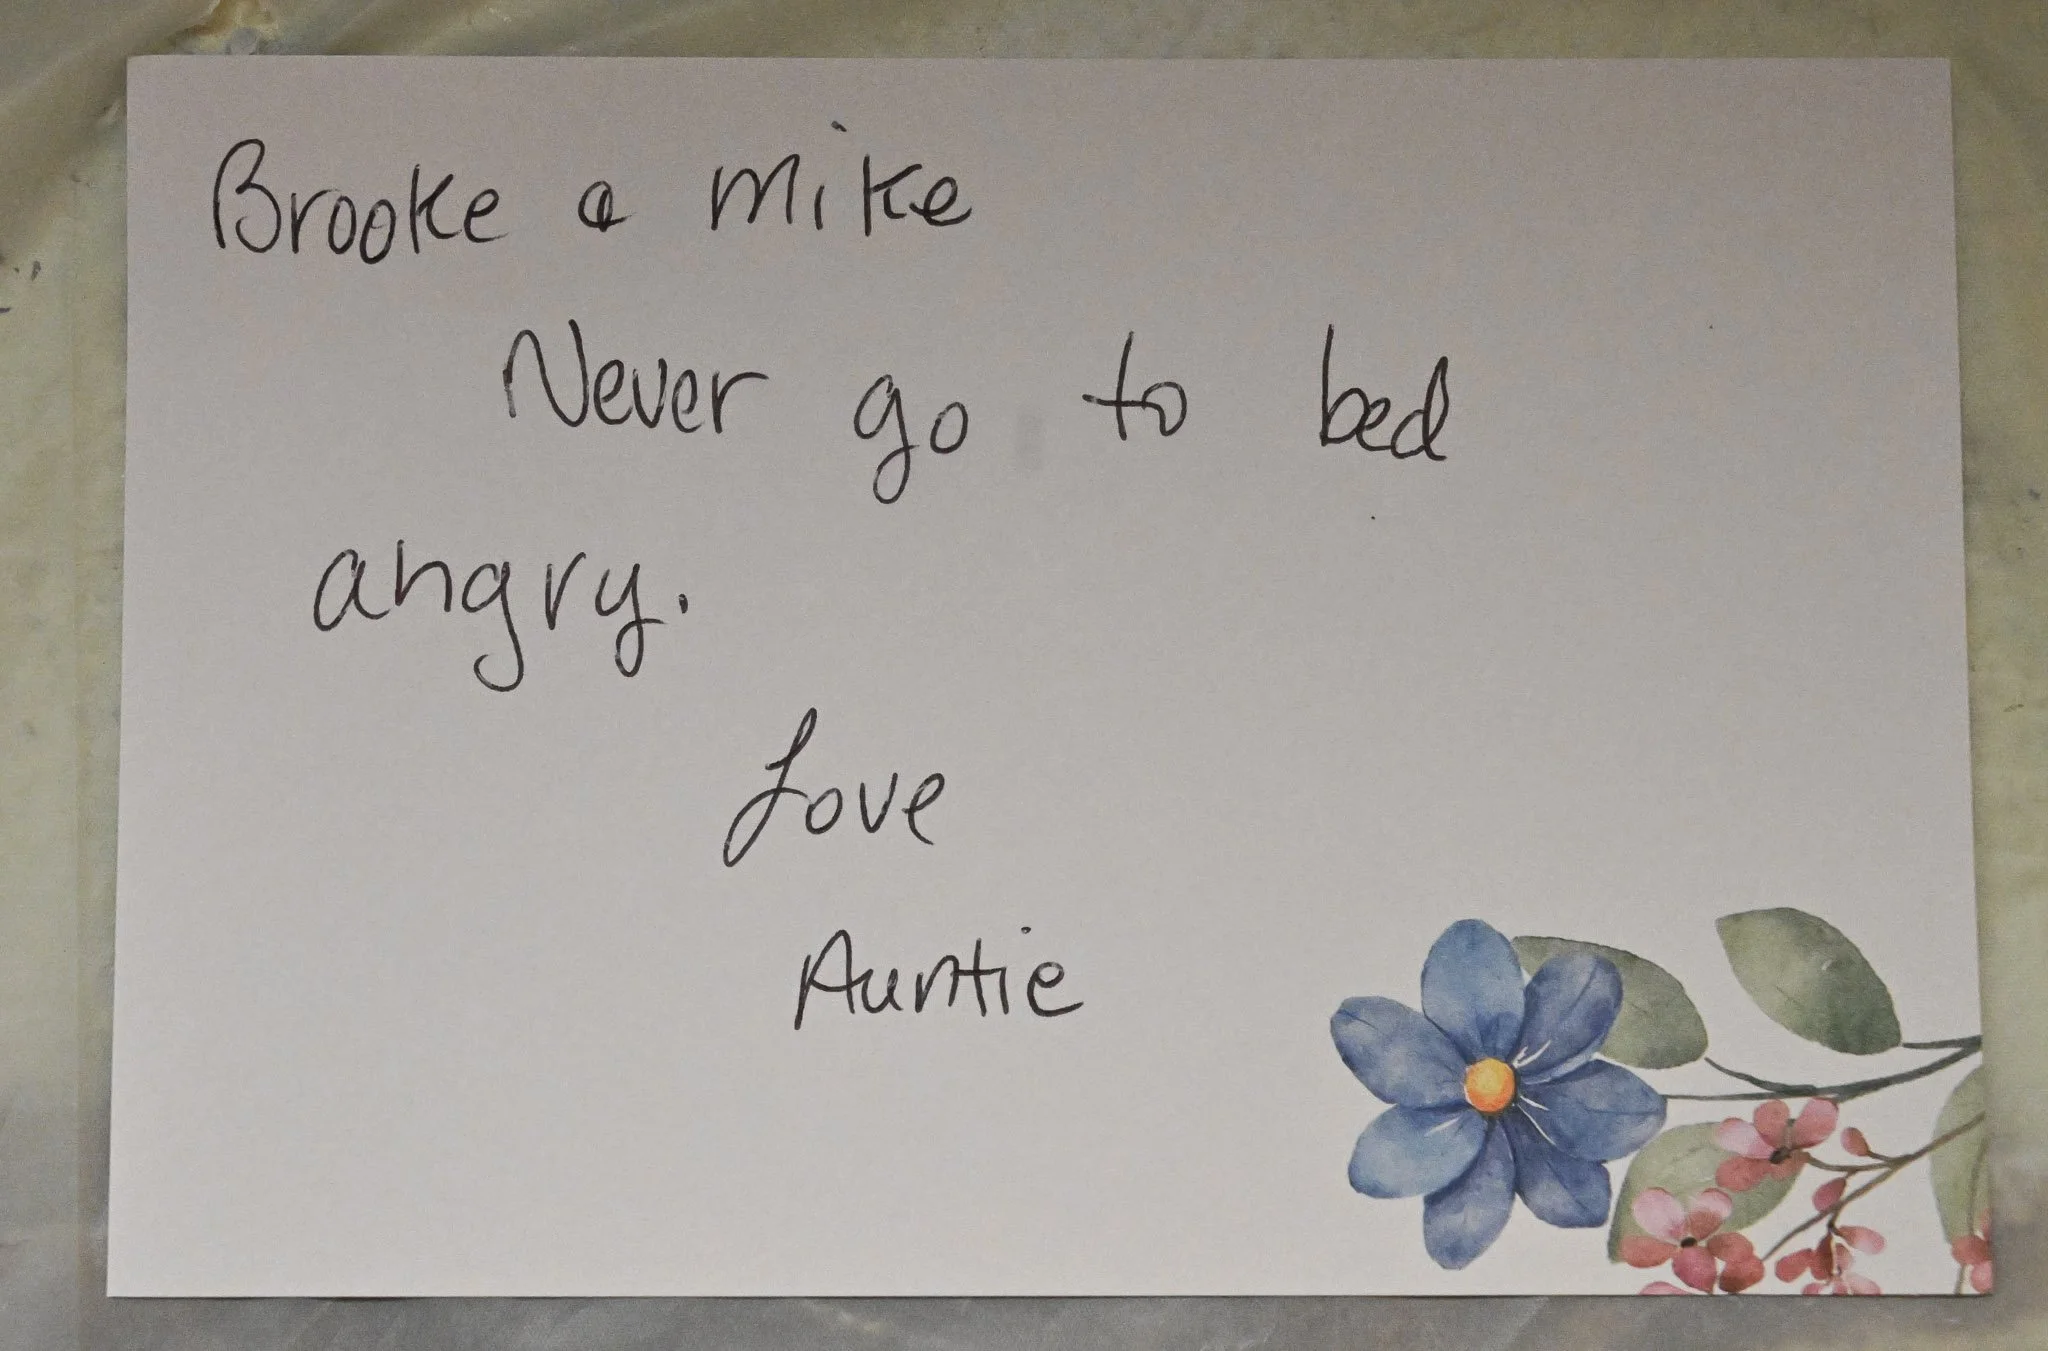 Brooke & Mike
Never go to bed
angry.
Love
Auntie